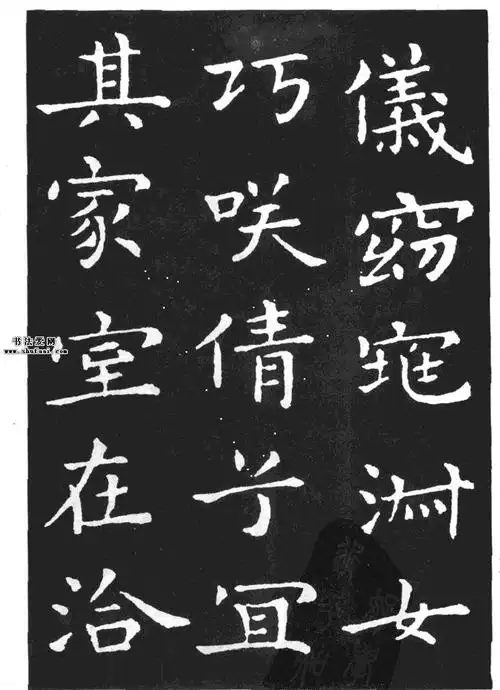 儀窈窕淑女
巧咲倩兮冝
其家室在洽
书法爱网